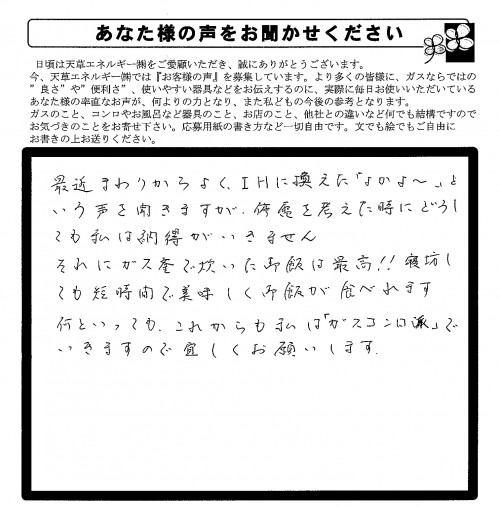 あなた様の声をお聞かせください
日頃は天草エネルギー㈱をご愛顧いただき、誠にありがとうございます。
今、天草エネルギー㈱では『お客様の声』を募集しています。より多くの皆様に、ガスならではの
"良さ"や"便利さ"、使いやすい器具などをお伝えするのに、実際に毎日お使いいただいている
あなた様の率直なお声が、何よりの力となり、また私どもの今後の参考となります。
ガスのこと、コンロやお風呂など器具のこと、お店のこと、他社との違いなど何でも結構ですので
お気づきのことをお寄せ下さい。応募用紙の書き方など一切自由です。文でも絵でもご自由に
お書きの上お送りください。
最近まわりからよく、IHに換えた「よかよ〜」と
いう声を聞きますが、体感を考えた時にどうし
ても私は納得がいきません
それにガス釜で炊いた御飯は最高!!寝坊し
ても短時間で美味しく御飯が食べれます
何といっても、これからも私は「ガスコンロ派」で
いきますので宜しくお願いします.